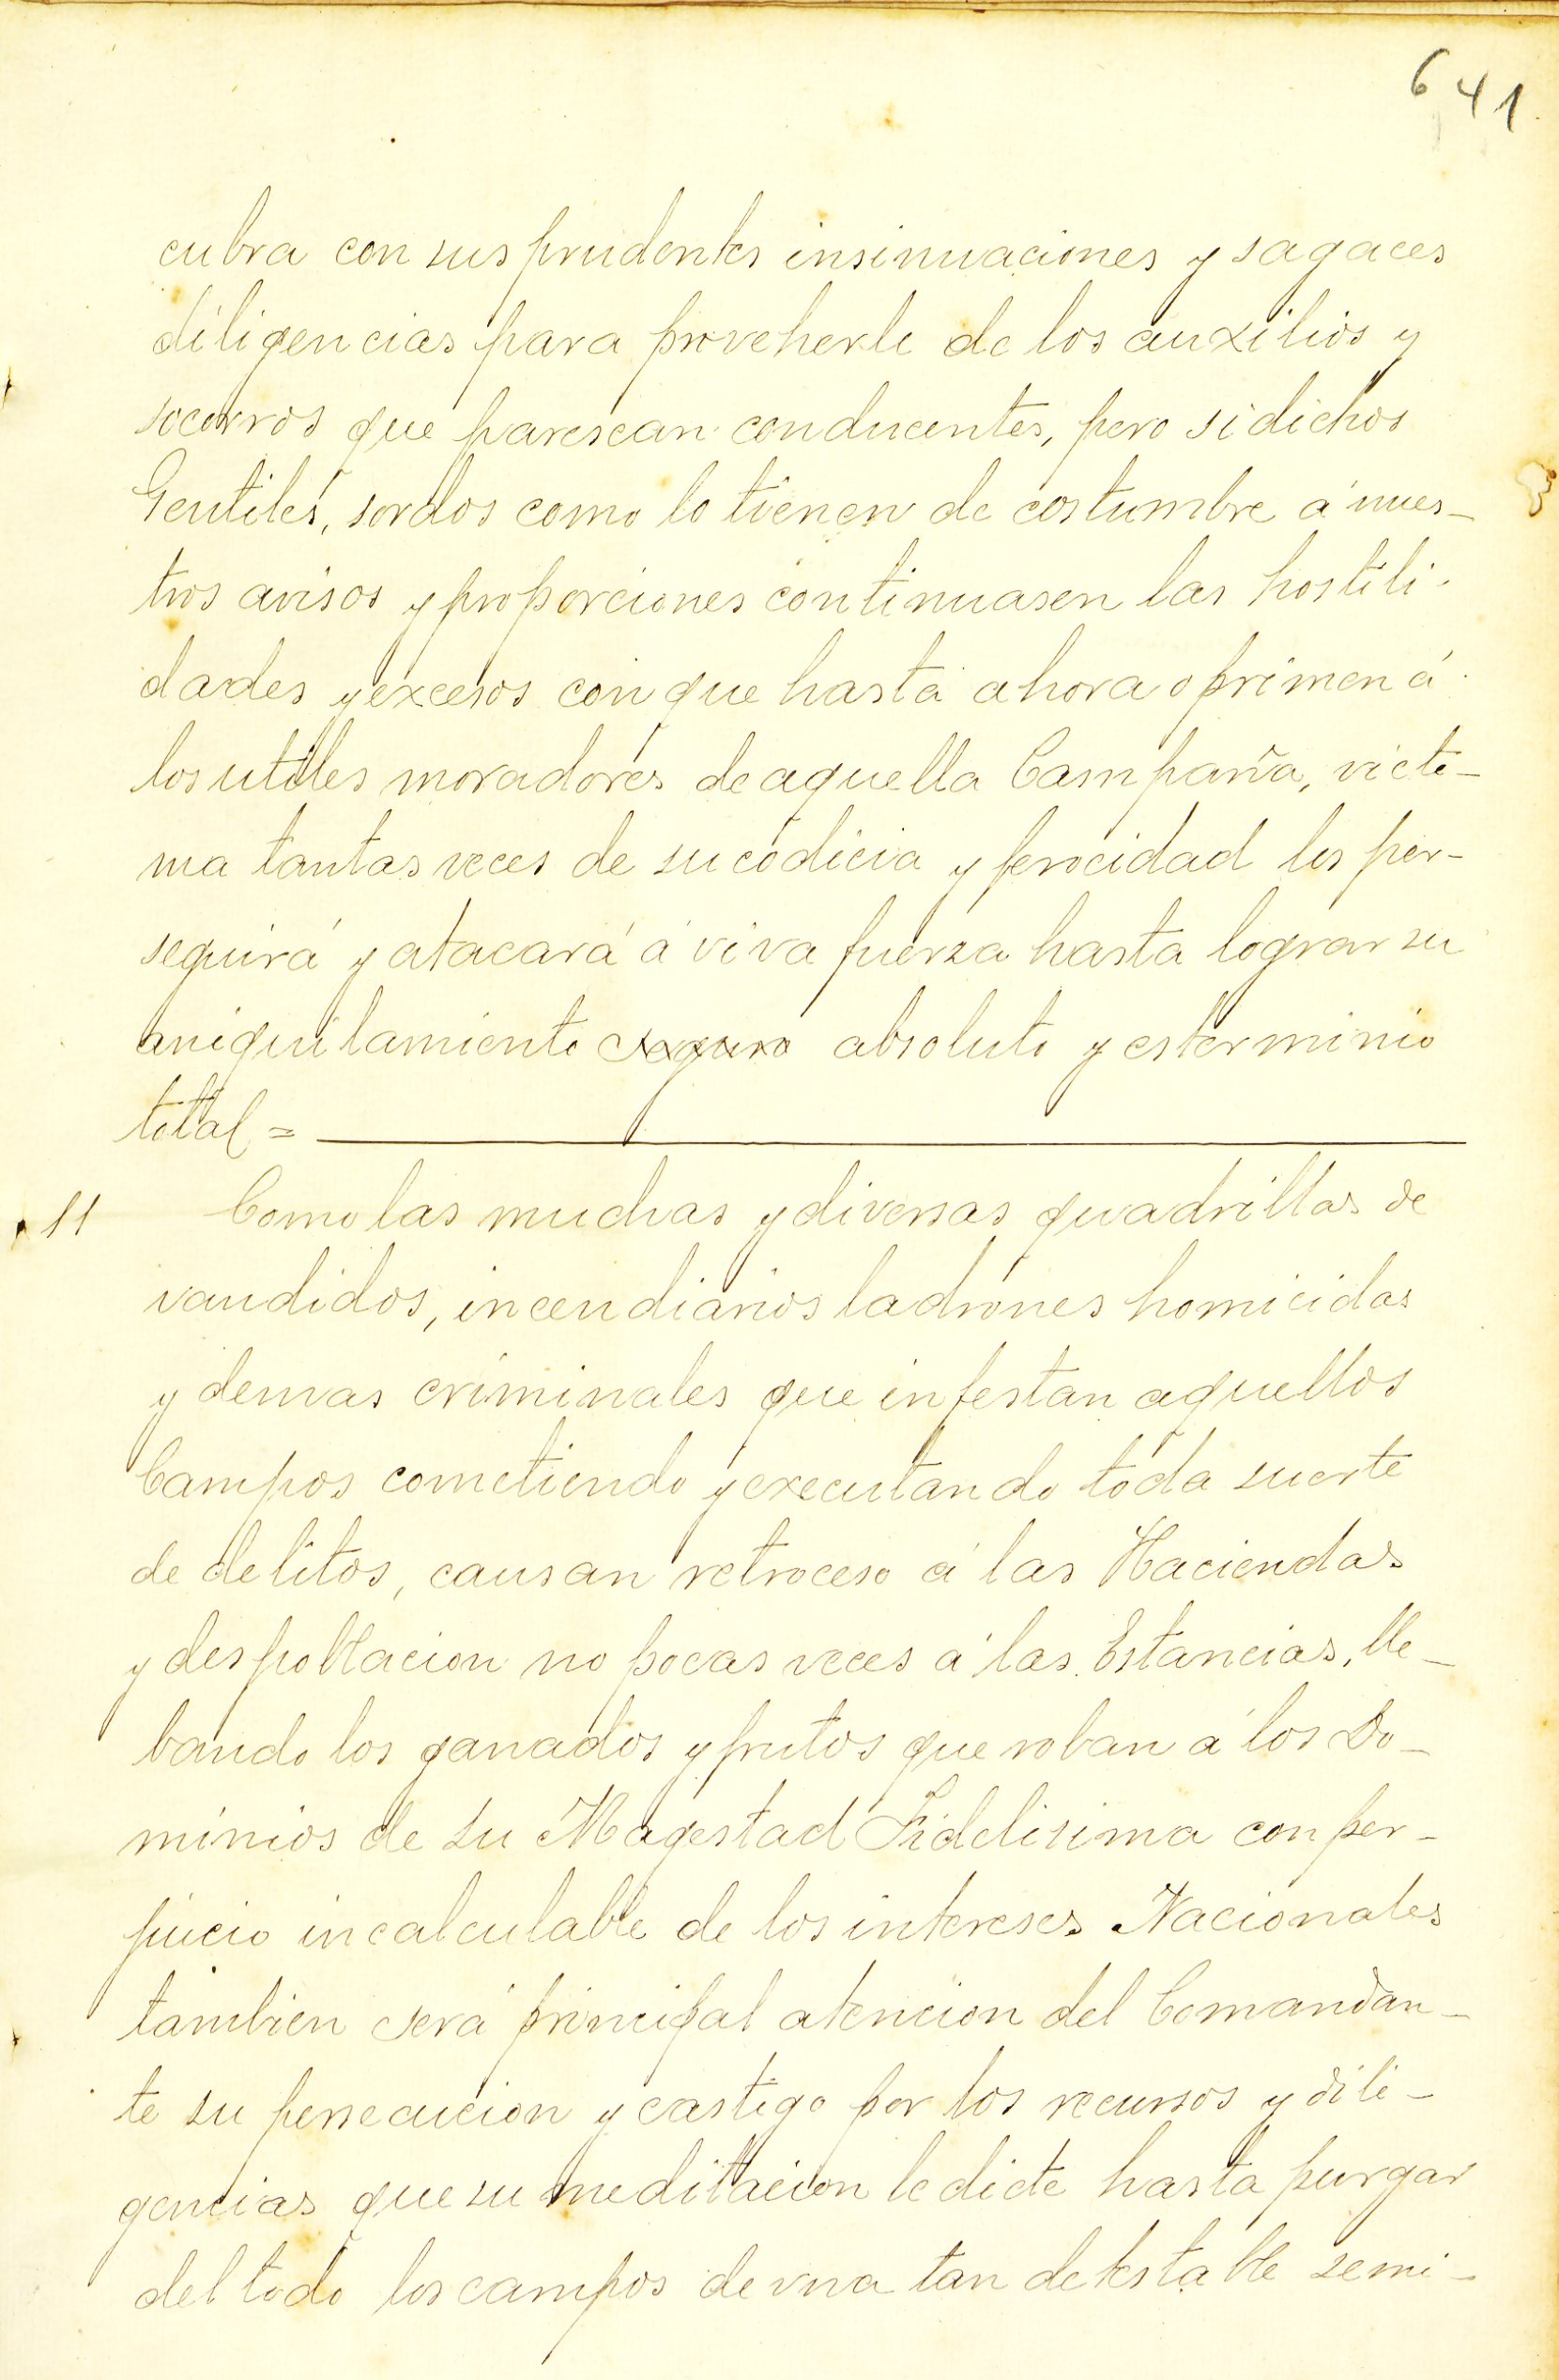 641
cubra con sus prudentes insinuaciones y sagaces
diligencias para proveherle de los auxilios y
socorros que parescan conducentes, pero si dichos
Gentiles, sordos como lo tienen de costumbre á nues-
tros avisos y proporciones continuasen las hostili-
dades y excesos con que hasta ahora oprimen á
los utiles moradores de aquella Campaña, victi-
ma tantas veces de su codicia y ferocidad los per-
seguirá y atacará á viva fuerza hasta lograr su
aniquilamiento seguro absoluto y esterminio
total =
11 Como las muchas y diversas quadrillas de
vandidos, incendiarios ladrones homicidas
y demas criminales que infestan aquellos
Campos cometiendo y executando toda suerte
de delitos, causan retroceso á las Haciendas
y despoblacion no pocas veces á las Estancias, lle-
bando los ganados y frutos que roban á los Do-
minios de su Magestad Fidelisima con per-
juicio incalculable de los intereses Nacionales
tambien será principal atencion del Comandan-
te su persecucion y castigo por los recursos y dili-
gencias que su meditacion le dicte hasta purgar
del todo los campos de una tan detestable semi-